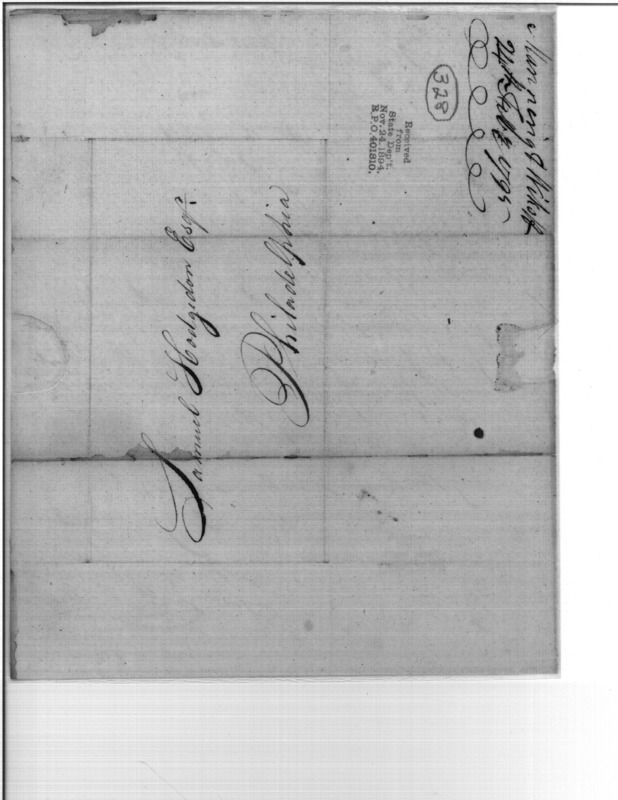 24th Feb 1795
328
Received
from
State Dep't.
Nov. 24, 1894,
R.P.O. 401810.
Samuel Hodgdon Esqr.
Philadelphia